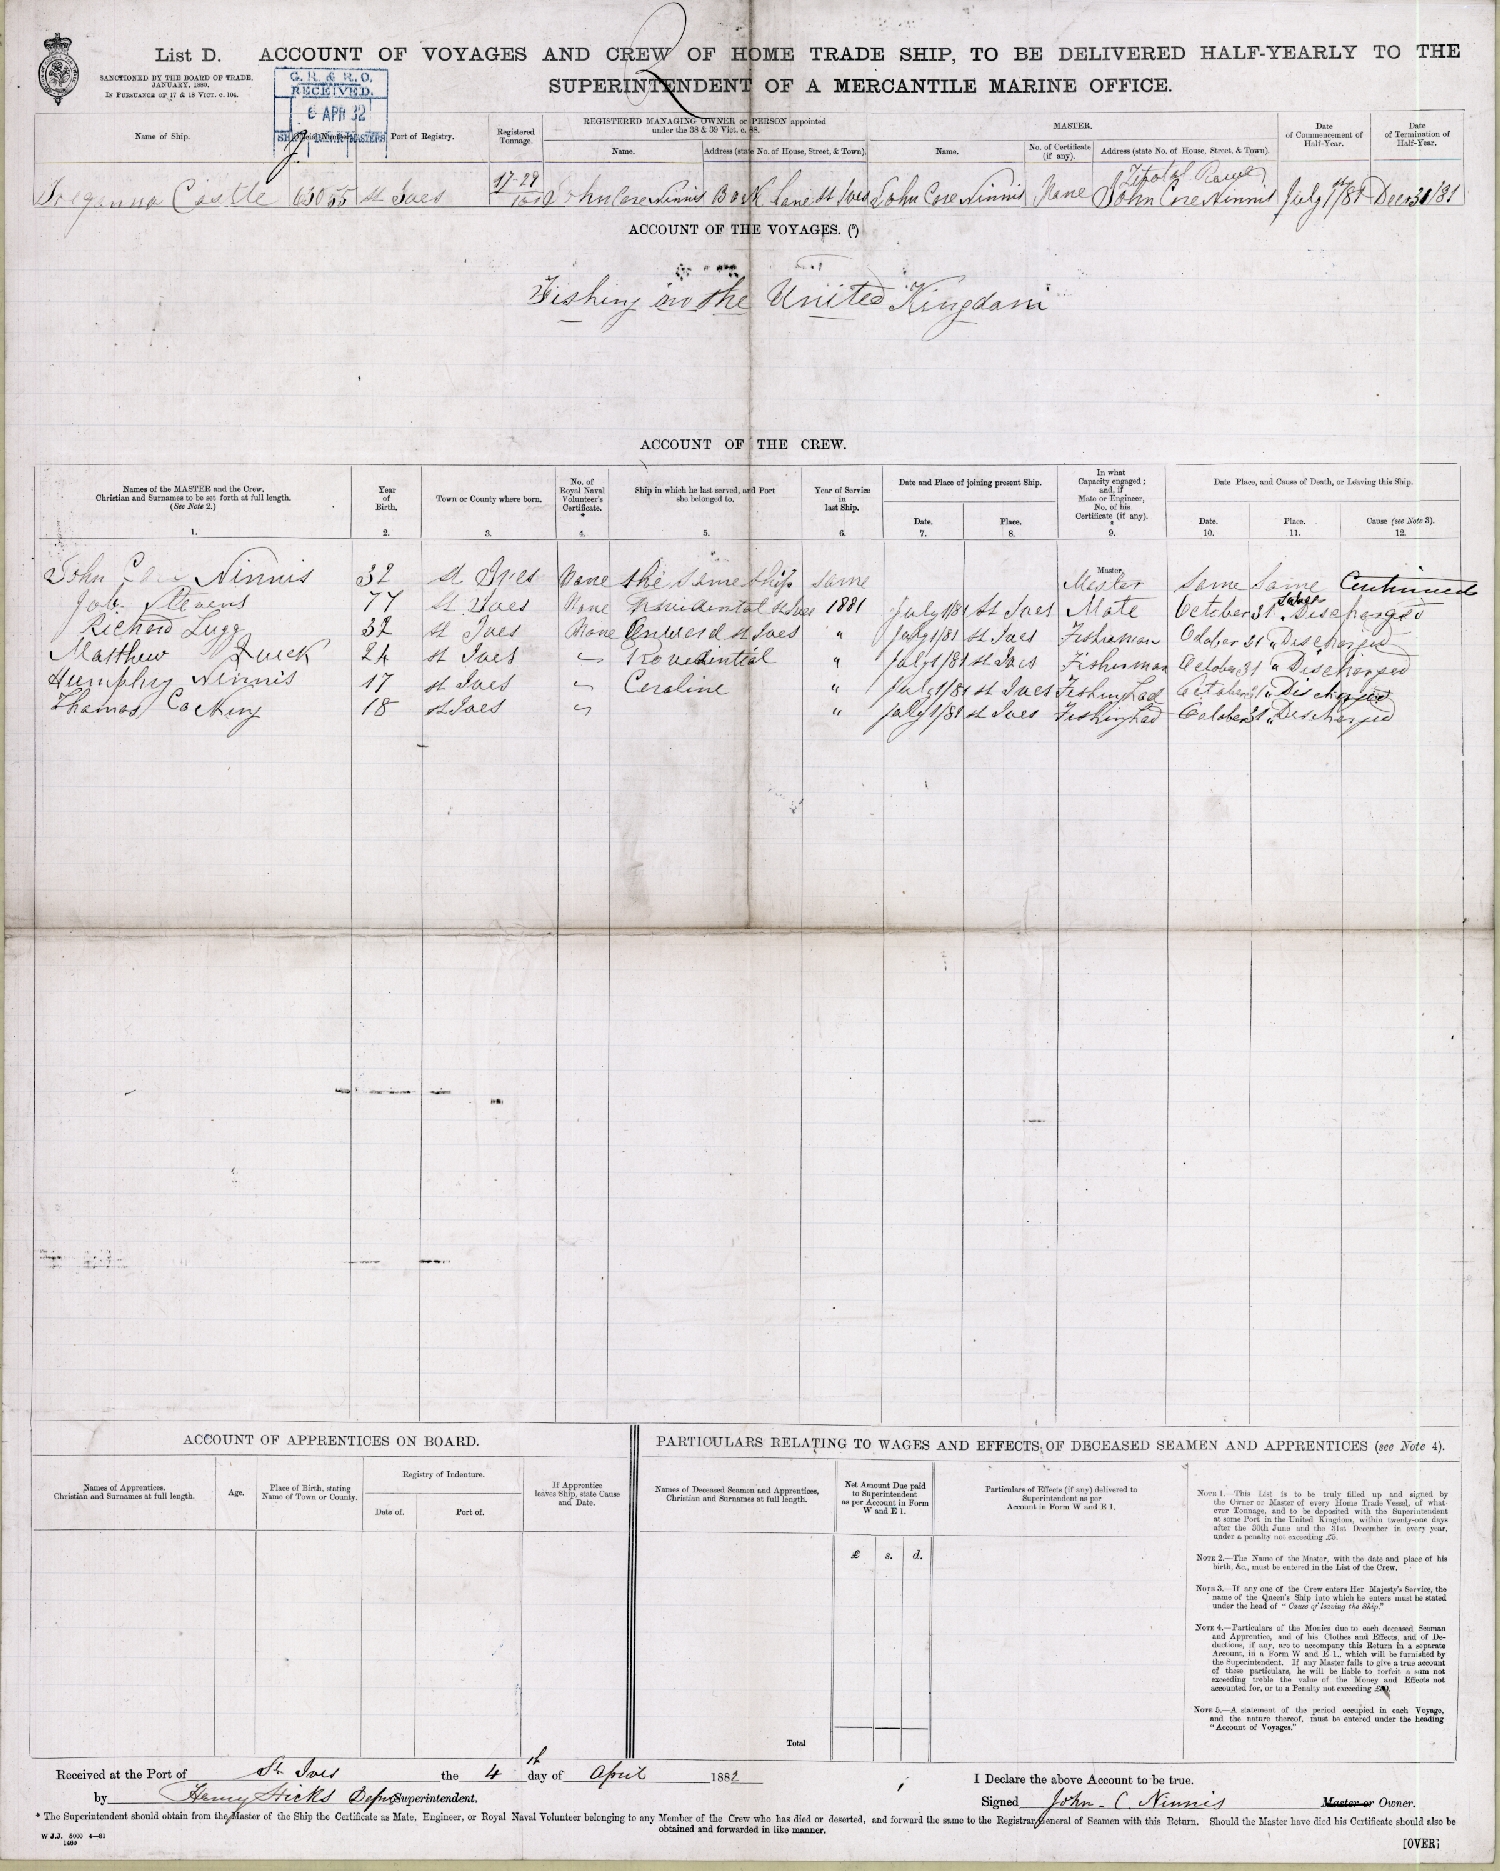 List D. ACCOUNT OF VOYAGES AND CREW OF HOME TRADE SHIP, TO BE DELIVERED HALF-YEARLY TO THE
SUPERINTENDENT OF A MERCANTILE MARINE OFFICE.
SANCTIONED BY THE BOARD OF TRADE,
JANUARY, 1880.
IN PURSUANCE OF 17 & 18 VICT. c. 104.
G. R. & R. O.
RECEIVED.
6 APR 82
Name of Ship. Port of Registry. Registered Tonnage. REGISTERED MANAGING OWNER or PERSON appointed under the 38 & 39 Vict. c. 88. MASTER. Date of Commencement of Half-Year. Date of Termination of Half-Year.
Name. Address (state No. of House, Street, & Town). Name. No. of Certificate (if any). Address (state No. of House, Street, & Town).
Castle 63055 St Ives 17-29/100 John Core Ninnis Back Lane St Ives John Core Ninnis None John Core Ninnis July 1st/81 Decr 31/81
ACCOUNT OF THE VOYAGES. (5)
Fishing on the United Kingdom
ACCOUNT OF THE CREW.
Names of the MASTER and the Crew. Christian and Surnames to be set forth at full length. (See Note 2.) Year of Birth. Town or County where born. No. of Royal Naval Volunteer's Certificate. * Ship in which he last served, and Port she belonged to. Year of Service in last Ship. Date and Place of joining present Ship. In what Capacity engaged; and, if Mate or Engineer, No. of his Certificate (if any). * Date Place, and Cause of Death, or Leaving this Ship.
Date. Place. Date. Place. Cause (see Note 3).
1. 2. 3. 4. 5. 6. 7. 8. 9. 10. 11. 12.
Master
John Core Ninnis 32 St Ives None the same ship same Master Same Same Continued
Job Stevens 77 St Ives None Providential St Ives 1881 July 1/81 St Ives Mate October 31 St Ives Discharged
Richard Lugg 32 St Ives None Onward St Ives " July 1/81 St Ives Fisherman October 31 " Discharged
Matthew Quick 24 St Ives " Providential " July 1/81 St Ives Fisherman October 31 " Discharged
Humphry Ninnis 17 St Ives " Ceraline " July 1/81 St Ives Fishing Lad October 31 " Discharged
Thomas Cocking 18 St Ives " " July 1/81 St Ives Fishing Lad October 31 " Discharged
ACCOUNT OF APPRENTICES ON BOARD.
Names of Apprentices. Christian and Surnames at full length. Age. Place of Birth, stating Name of Town or County. Registry of Indenture. If Apprentice leaves Ship, state Cause and Date.
Date of. Port of.
PARTICULARS RELATING TO WAGES AND EFFECTS OF DECEASED SEAMEN AND APPRENTICES (see Note 4).
Names of Deceased Seamen and Apprentices, Christian and Surnames at full length. Net Amount Due paid to Superintendent as per Account in Form W and E 1. Particulars of Effects (if any) delivered to Superintendent as per Account in Form W and E 1.
£ s. d.
Total
NOTE 1.—This List is to be truly filled up and signed by
the Owner or Master of every Home Trade Vessel, of what-
ever Tonnage, and to be deposited with the Superintendent
at some Port in the United Kingdom, within twenty-one days
after the 30th June and the 31st December in every year,
under a penalty not exceeding £5.
NOTE 2.—The Name of the Master, with the date and place of his
birth, &c., must be entered in the List of the Crew.
NOTE 3.—If any one of the Crew enters Her Majesty's Service, the
name of the Queen's Ship into which he enters must be stated
under the head of "Cause of leaving the Ship."
NOTE 4.—Particulars of the Monies due to each deceased Seaman
and Apprentice, and of his Clothes and Effects, and of De-
ductions, if any, are to accompany this Return in a separate
Account, in a Form W and E 1., which will be furnished by
the Superintendent. If any Master fails to give a true account
of these particulars, he will be liable to forfeit a sum not
exceeding treble the value of the Money and Effects not
accounted for, or to a Penalty not exceeding
NOTE 5.—A statement of the period occupied in each Voyage,
and the nature thereof, must be entered under the heading
"Account of Voyages."
Received at the Port of St. Ives the 4 th day of April 1882
by Henry Hicks Depy Superintendent.
I Declare the above Account to be true.
Signed John C Ninnis Master or Owner.
* The Superintendent should obtain from the Master of the Ship the Certificate as Mate, Engineer, or Royal Naval Volunteer belonging to any Member of the Crew who has died or deserted, and forward the same to the Registrar General of Seamen with this Return. Should the Master have died his Certificate should also be
obtained and forwarded in like manner.
W J.J. 5000 4—81
[OVER]